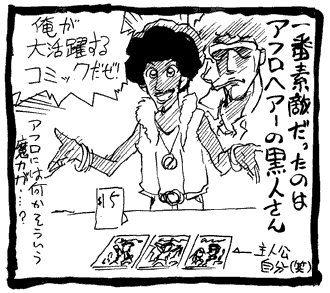 一番素敵だったのは
アフロヘアーの黒人さん
俺が
大活躍する
コミックだぜ!
アフロには何かそういう
魔力が…?
$5
←主人公
自分(笑)